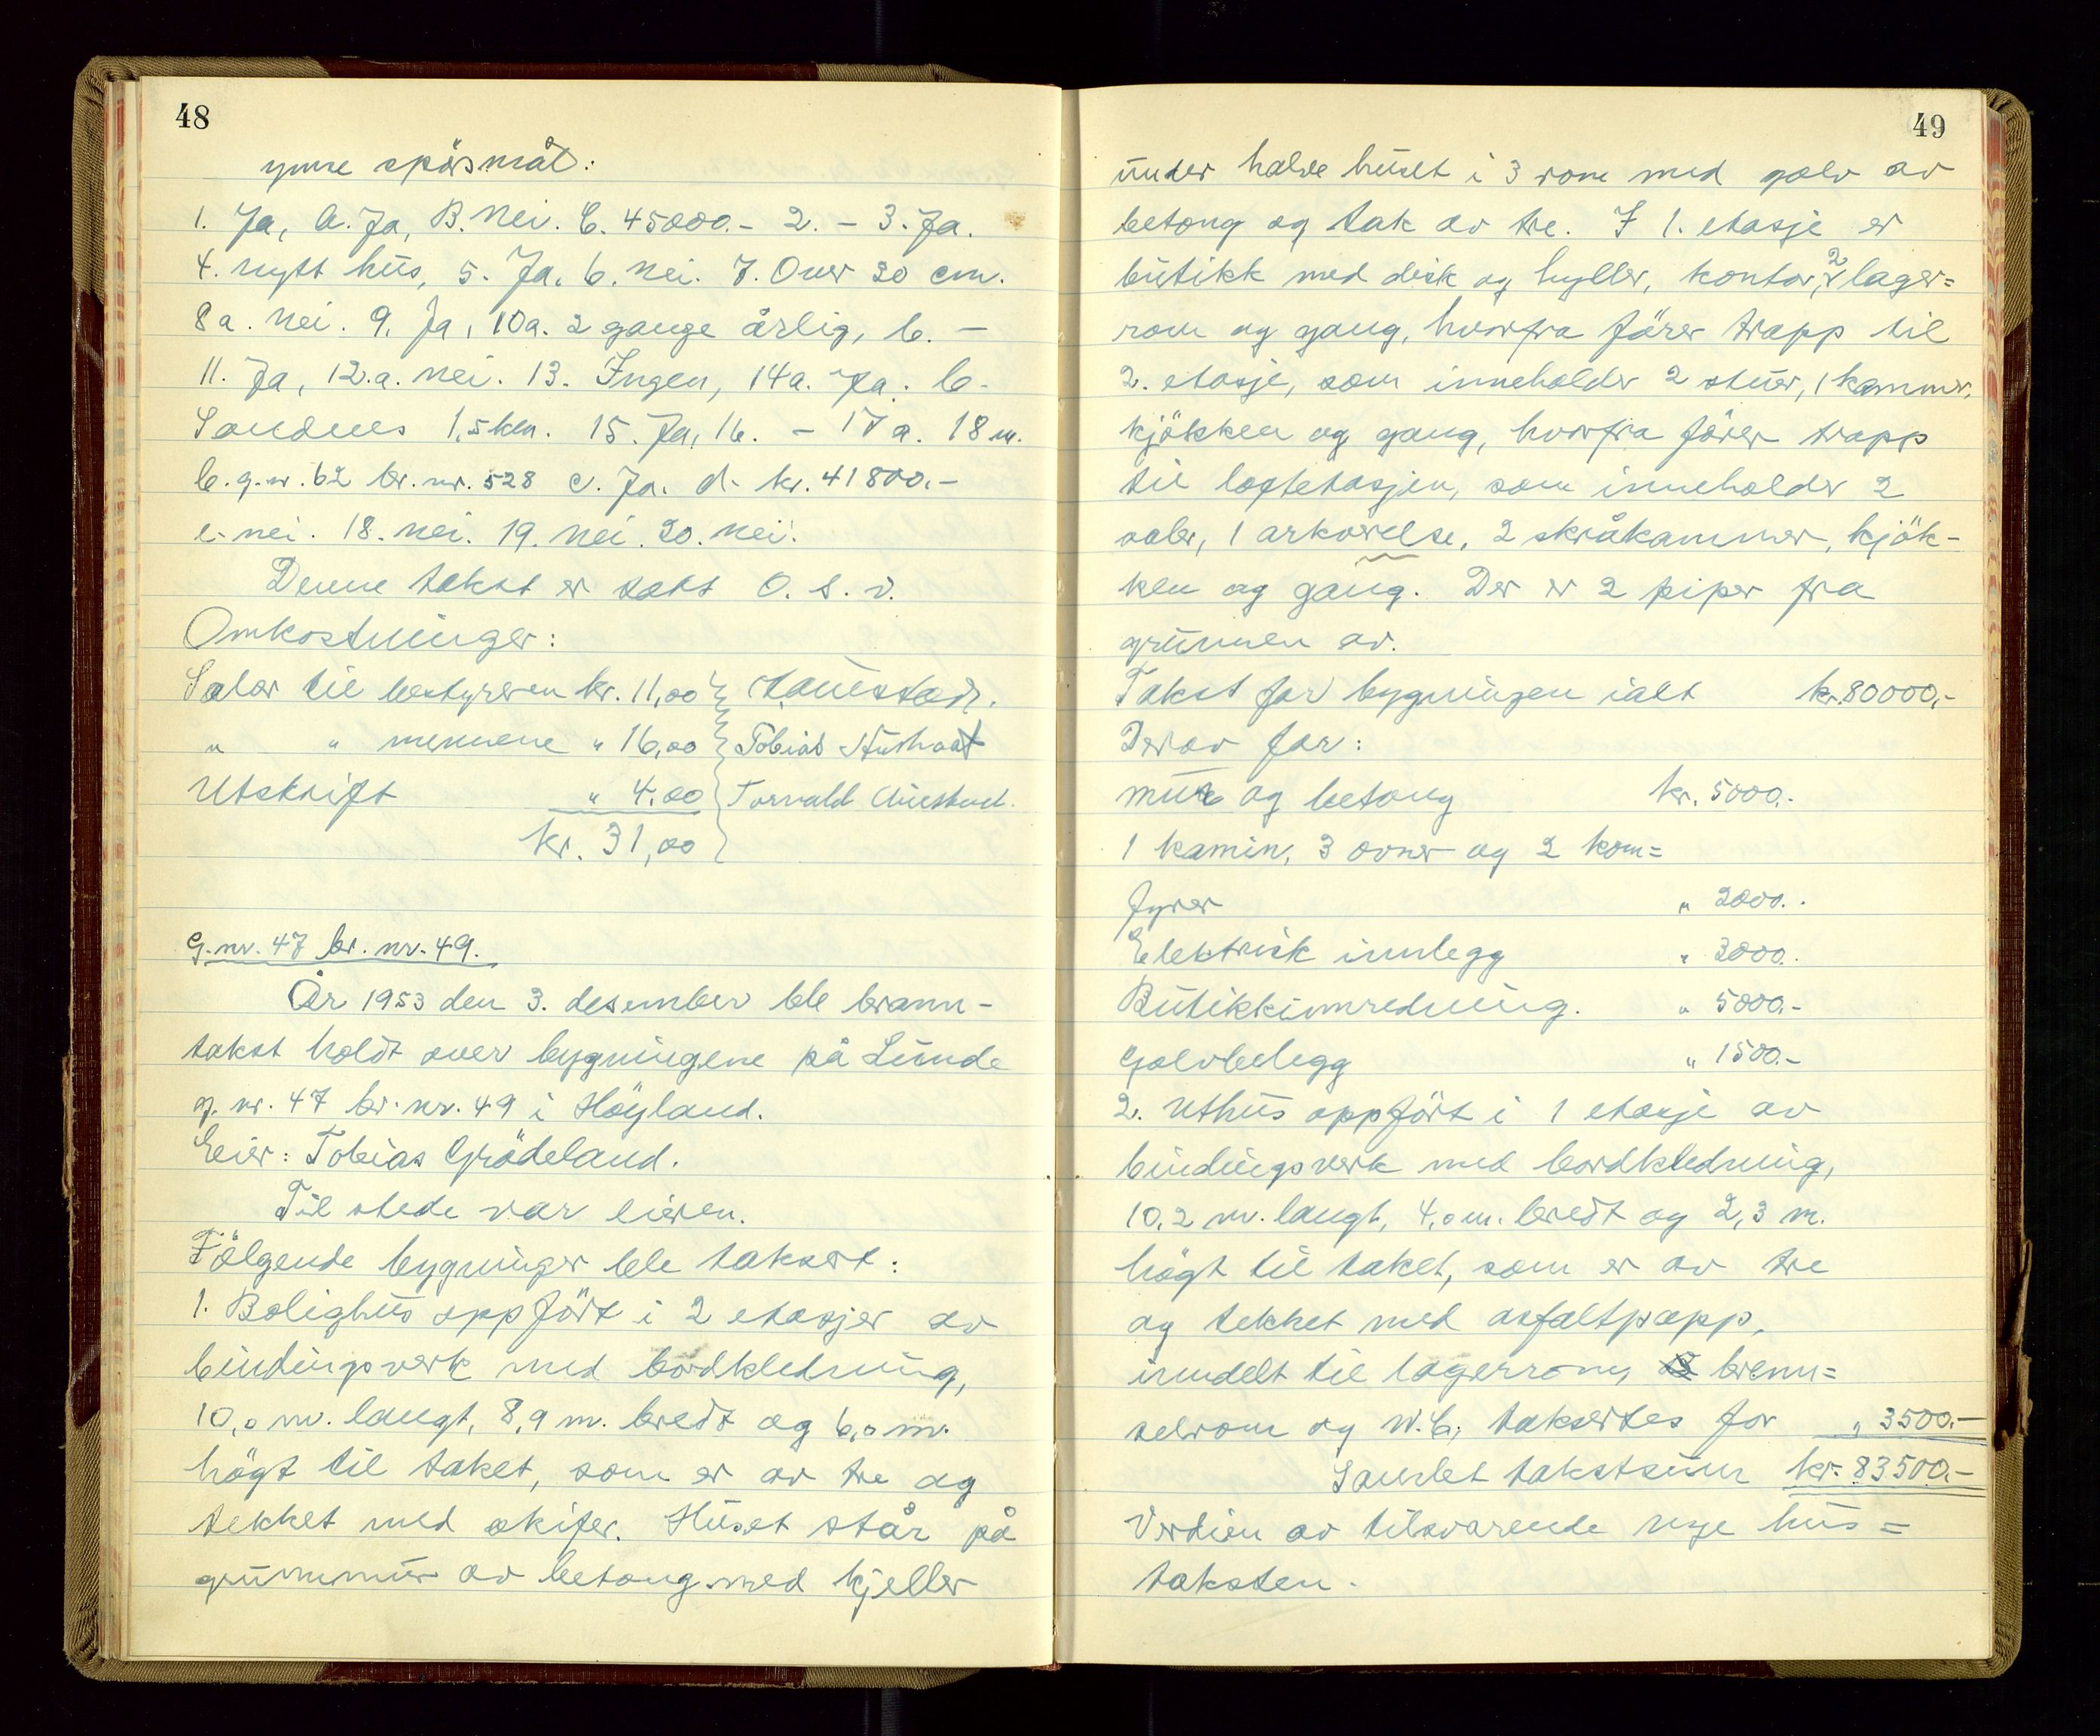 48
ymse spörsmål:
1. Ja, A. Ja, B. Nei. C. 45000.- 2. - 3. Ja.
4. nytt hus, 5. Ja. 6. nei. 7. Over 20 cm.
8a. Nei. 9. Ja, 10a. 2 gange årlig, b. -
11. Ja, 12.a. nei. 13. Ingen, 14a. Ja. b.
Sandnes 1,5 km. 15. Ja, 16. - 17a. 18 m.
b. g. nr. 62 br. nr. 528 c. Ja. d. kr. 41800.-
e. nei. 18. nei. 19. nei. 20. nei.
Denne takst er satt O. s. v.
Omkostninger:
Salær til bestyreren kr. 11,00
" " mennene " 16,00 Tobias
Utskrift " 4.00 Torvald
kr. 31,00
G. nr. 47 br. nr. 49.
År 1953 den 3. desember ble brann-
takst holdt over bygningene på Lunde
g. nr. 47 br. nr. 49 i Höyland.
Eier: Tobias Grödeland.
Til stede var eieren.
Fölgende bygninger ble taksert:
1. Bolighus oppfört i 2 etasjer av
bindingsverk med bordkledning,
10,0 m. langt, 8,9 m. bredt og 6,0 m.
högt til taket, som er av tre og
tekket med skifer. Huset står på
grunnmur av betong med kjeller
49
under halve huset i 3 rom med golv av
betong og tak av tre. I 1. etasje er
butikk med disk og hyller, kontor, 2 lager=
rom og gang, hvorfra förer trapp til
2. etasje, som inneholder 2 stuer, 1 kammer,
kjökken og gang, hvorfra förer trapp
til loftetasjen, som inneholder 2
saler, 1 arkværelse, 2 skråkammer, kjök-
ken og gang. Der er 2 piper fra
grunnen av.
Takst for bygningen ialt kr. 80000,-
Derav for:
mur og betong kr. 5000.-
1 kamin, 3 ovner og 2 kom=
fyrer " 2000.-
Elektrisk innlegg " 3000.-
Butikkinnredning. " 5000.-
Golvbelegg " 1500.-
2. Uthus oppfört i 1 etasje av
bindingsverk med bordkledning,
10,2 m. langt, 4,0 m. bredt og 2,3 m.
högt til taket, som er av tre
og tekket med asfaltpapp,
inndelt til lagerrom, brenn=
selrom og W.C., taksertes for " 3500.-
Samlet takstsum kr. 83500.-
Verdien av tilsvarende nye hus =
taksten.